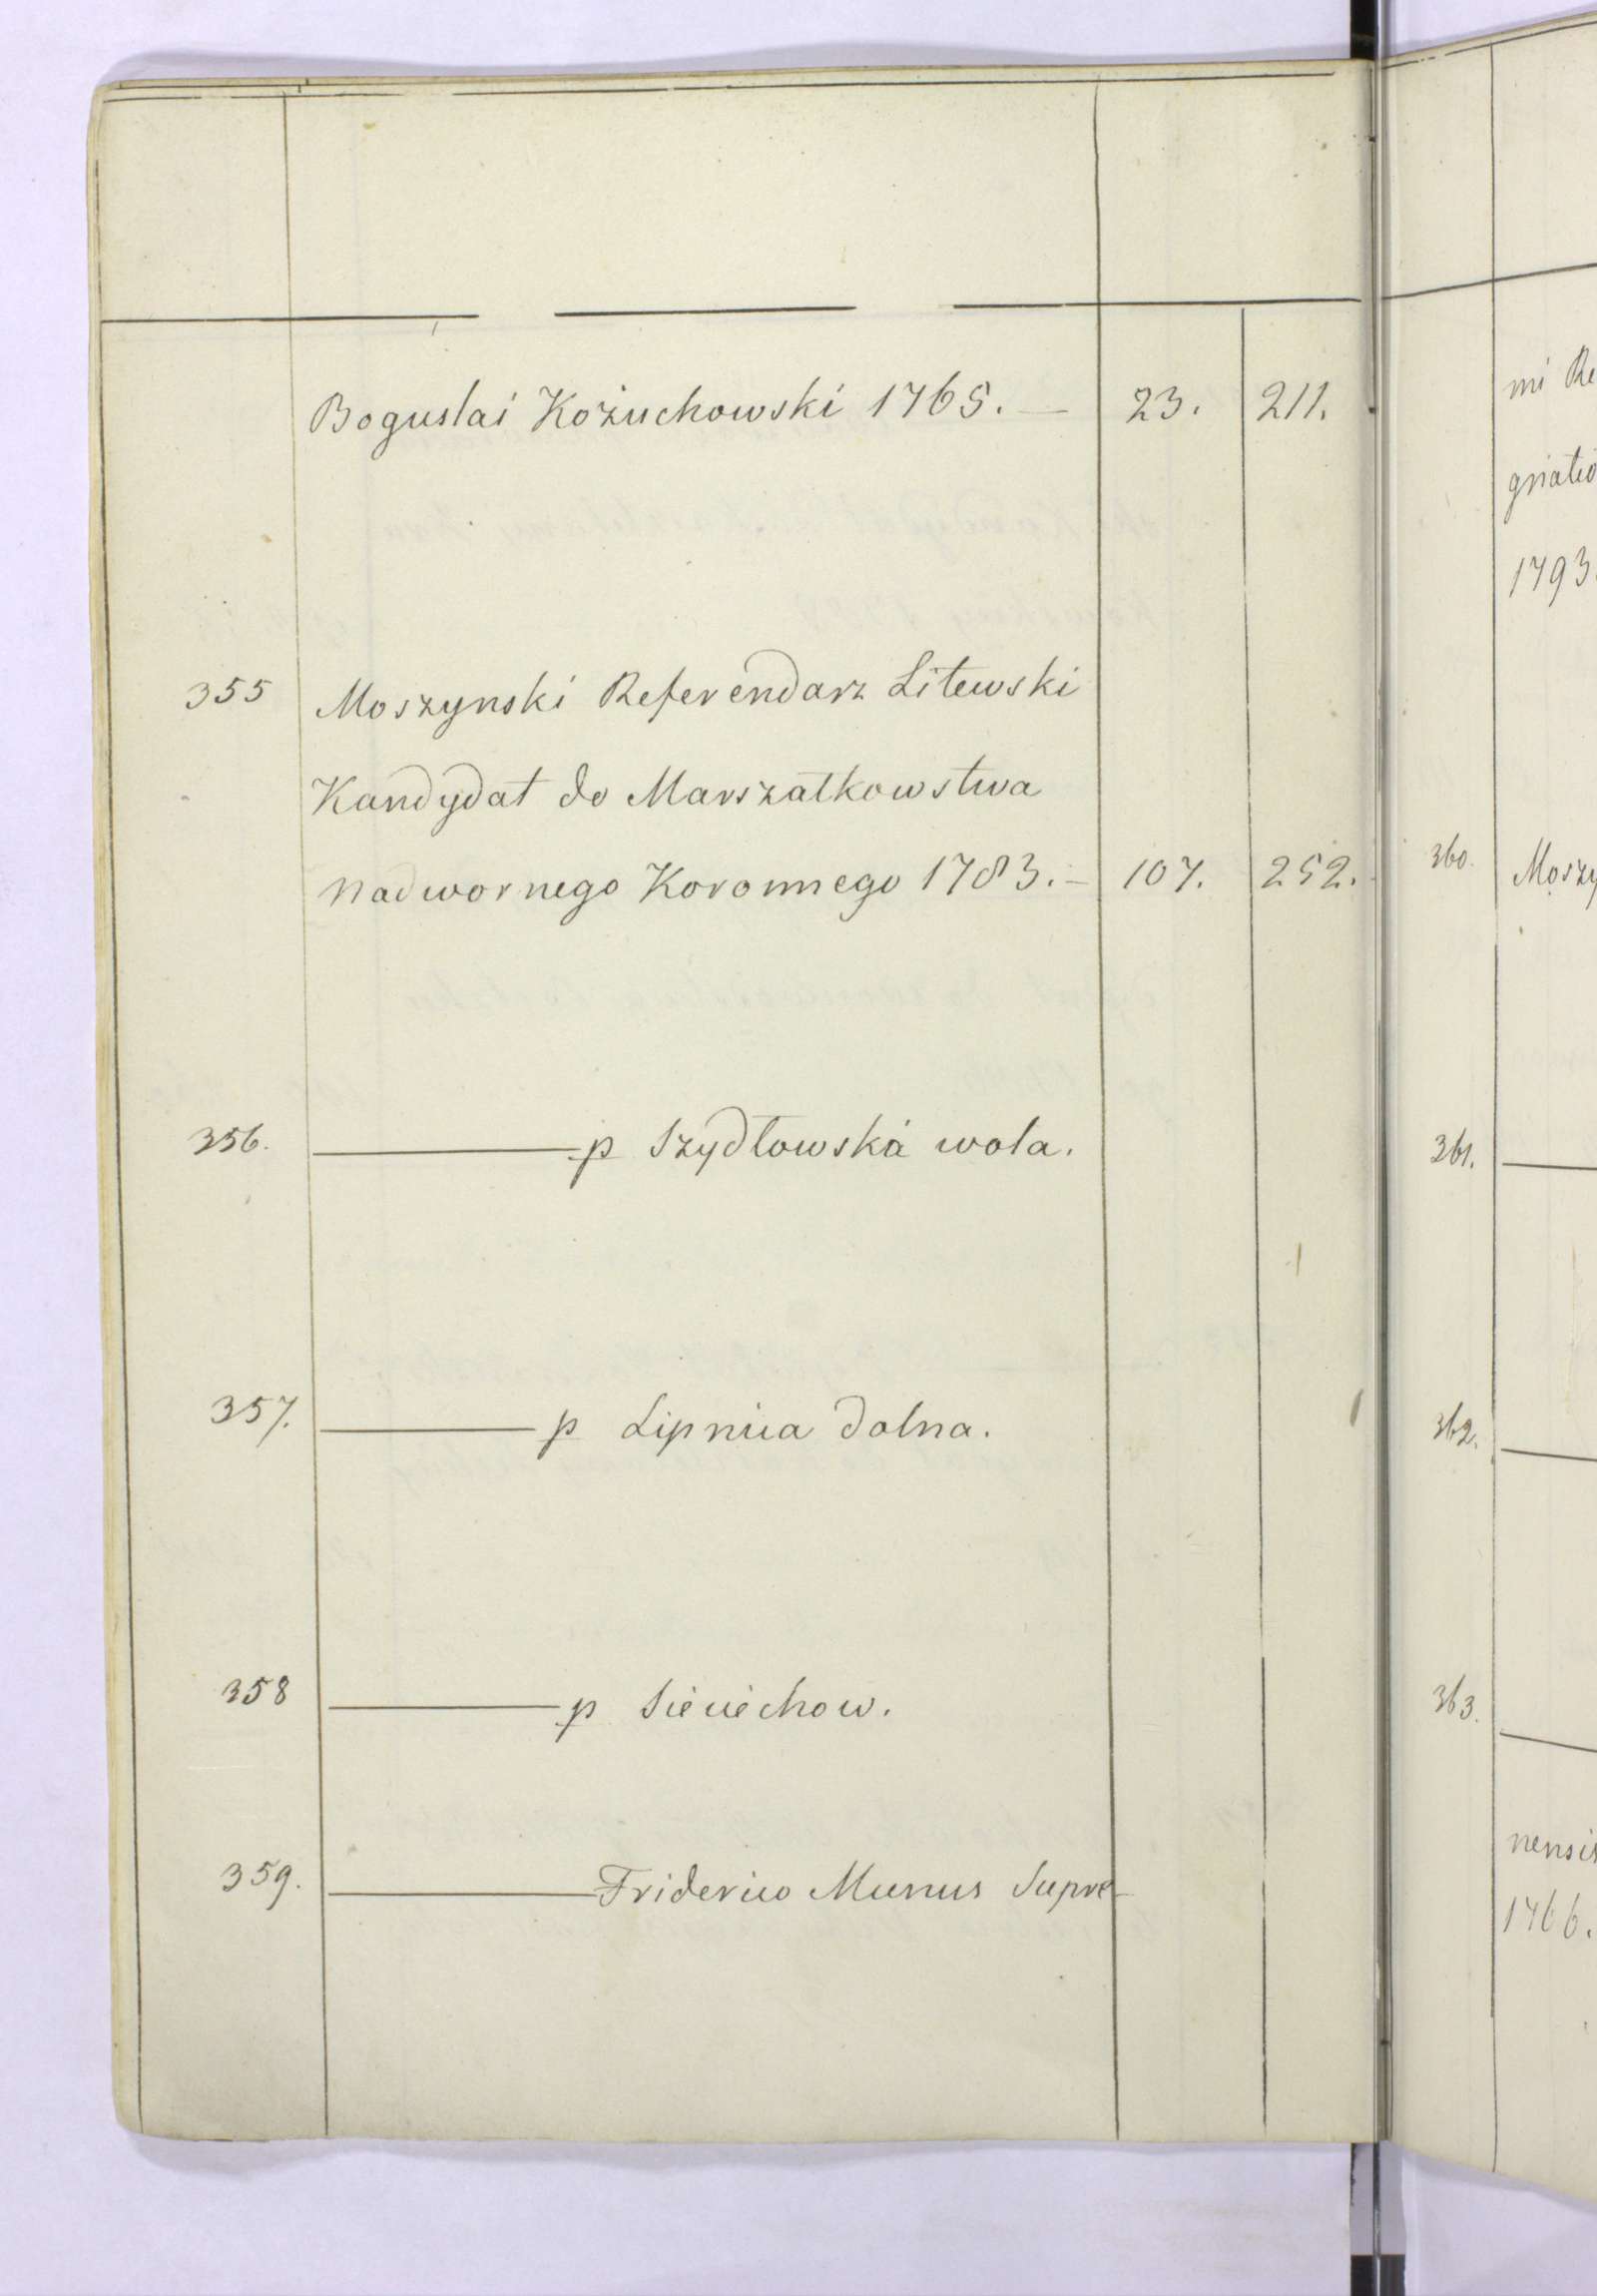 Boguslai Kożuchowski 1765. — 23. 211.
355 Moszynski Referendarz Litewski
Kandydat do Marszałkowstwa
nadwornego Koronnego 1783. — 107. 252.
356. ——— p Szydłowska wola.
357. ——— p Lipnica dolna.
358 ——— p Sieciechow.
359. ——— Friderico Munus Supre-
mi Re
gnatio
1793.
360. Moszy
361. ———
362. ———
363. ———
nensis
1766.